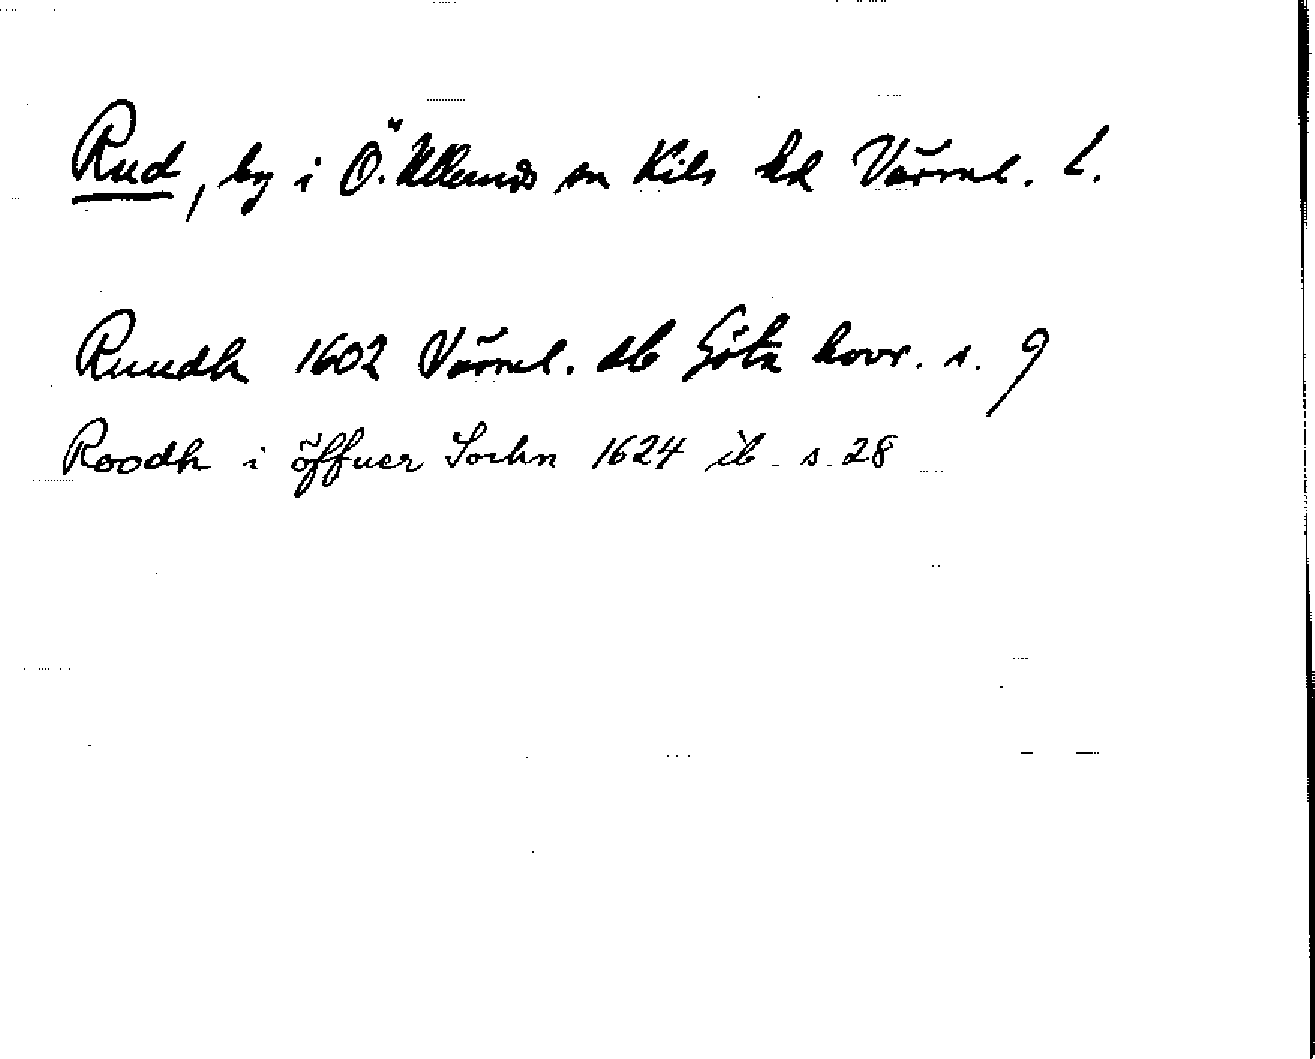 Rud, by i Ö. Ullerud sn Kils hd Värml. L.
Ruudh 1602 Värml. db Göta hovr. s. 9
Roodh i öffuer Sochn 1624 ib s. 28